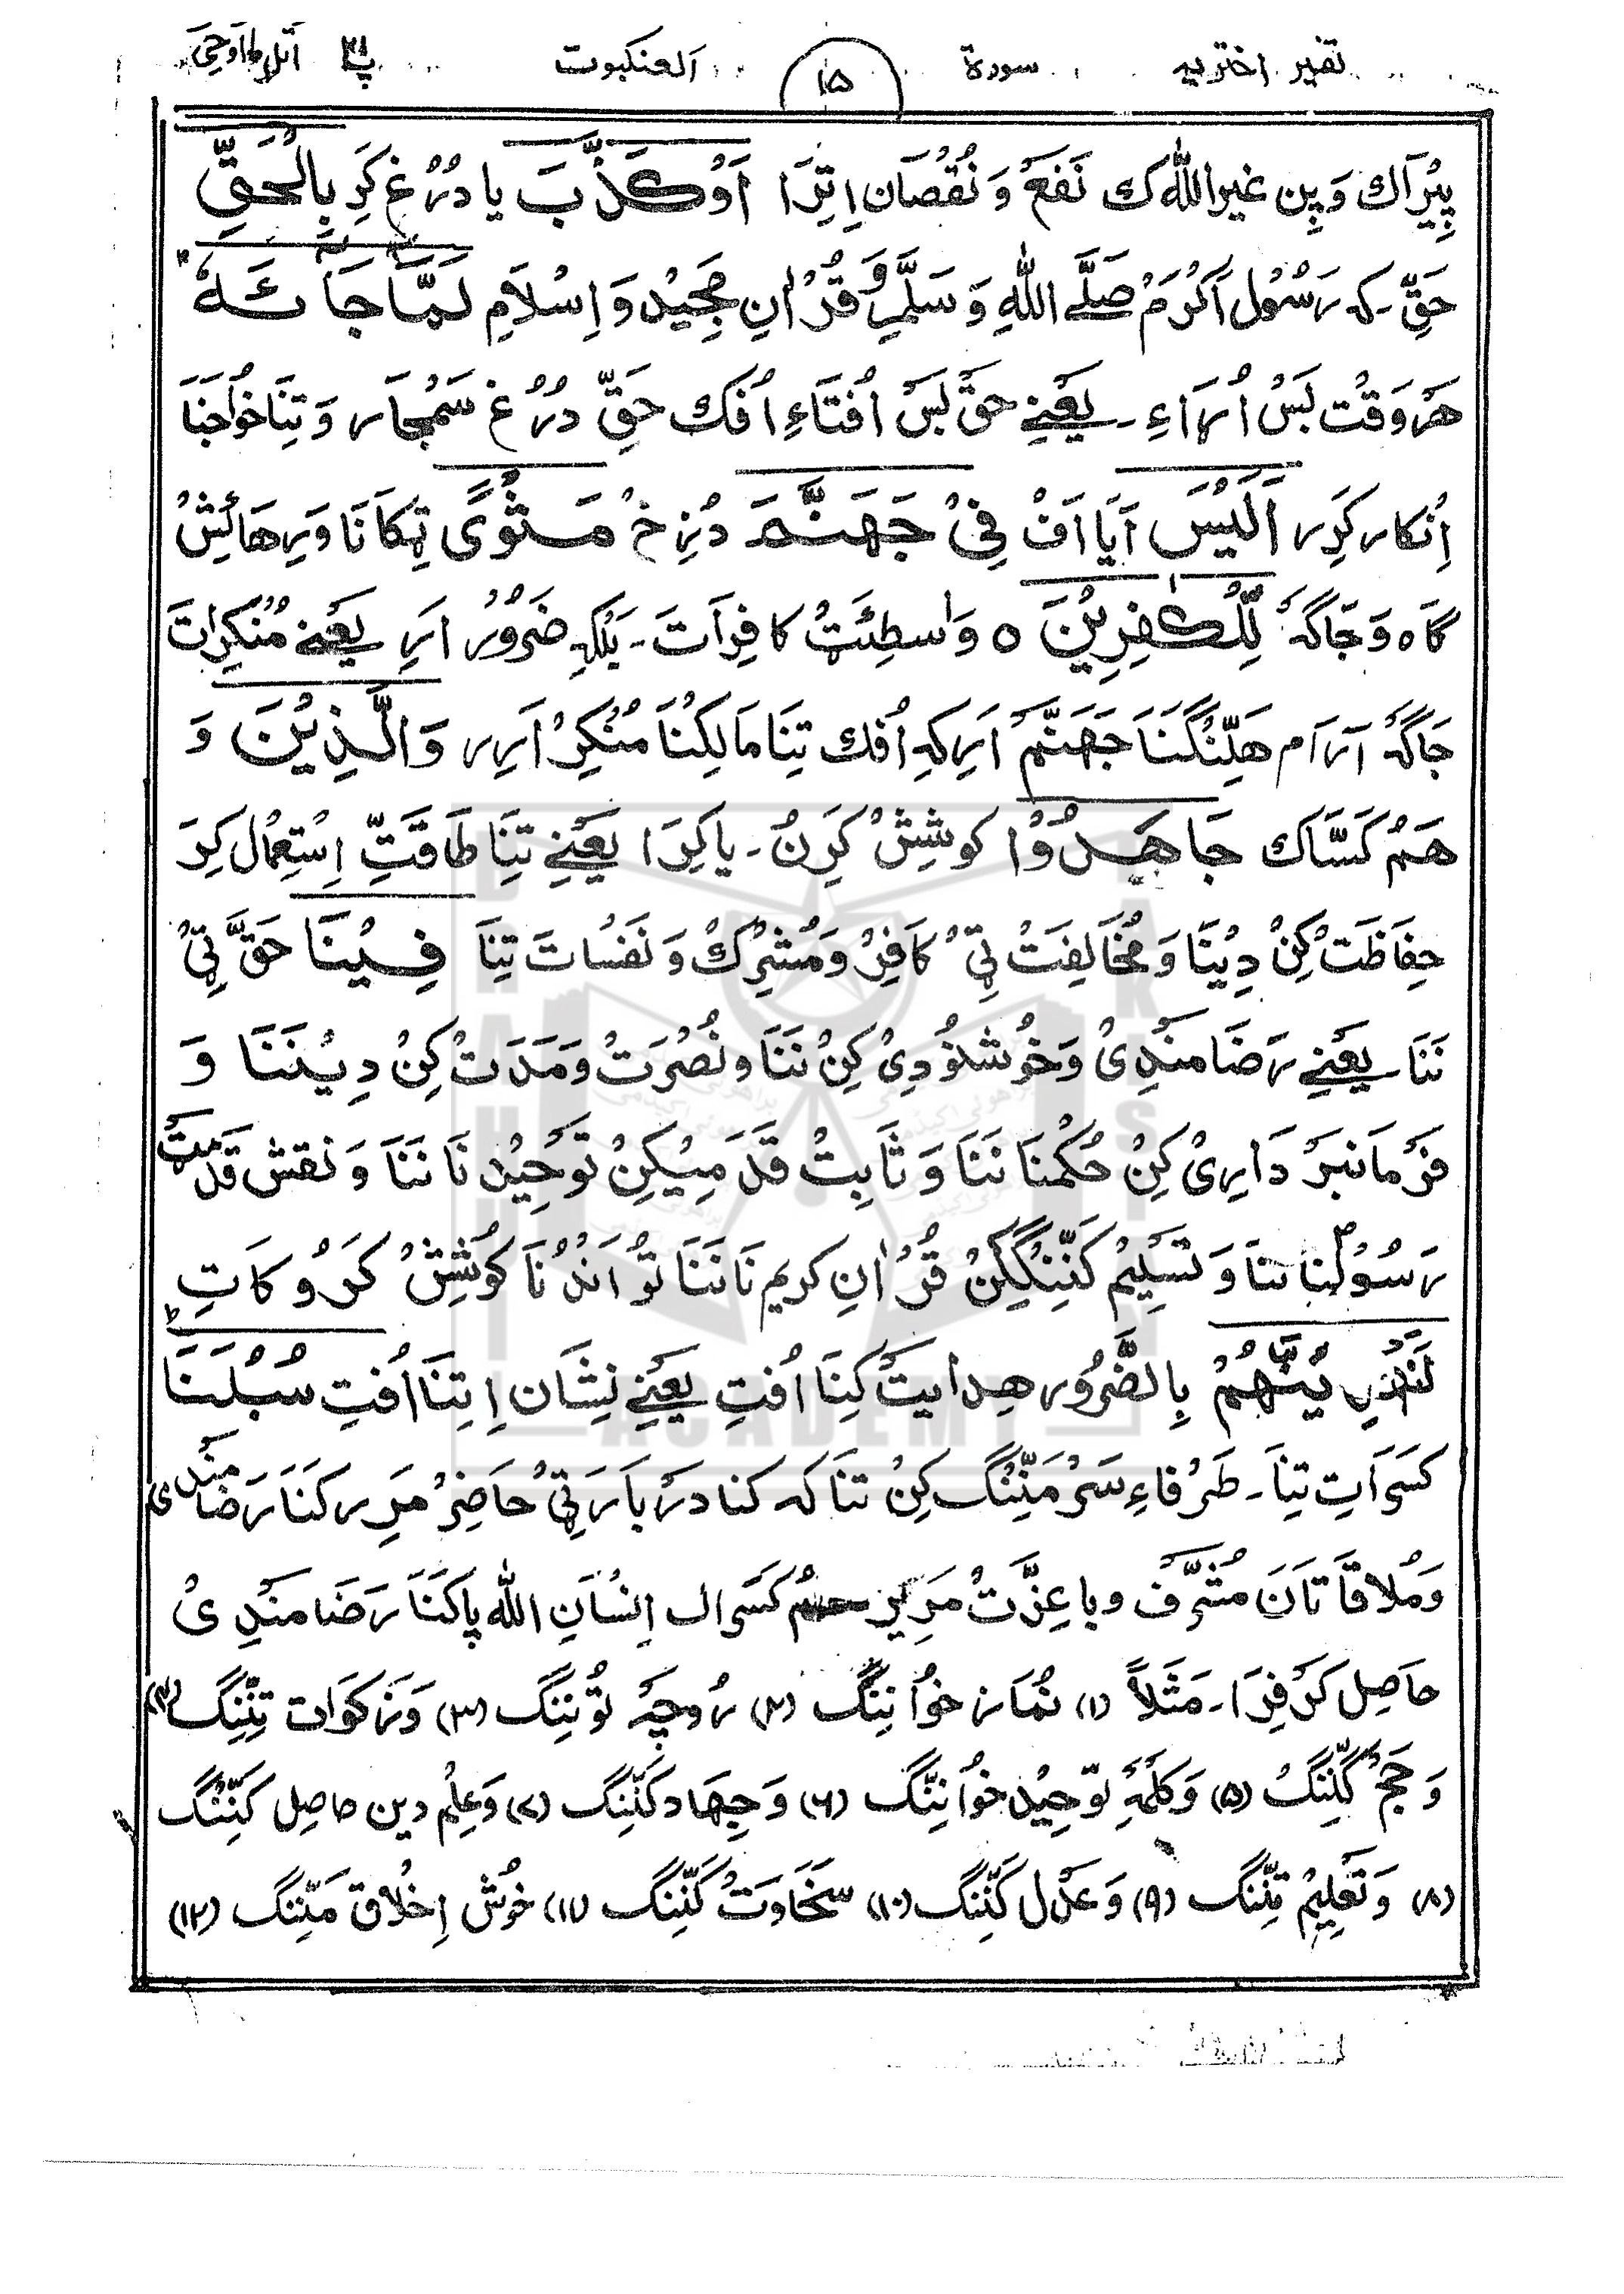 تفسیر اختریہ سورة ۱۵ العنکبوت پ۲۱ اتل ما اوحی
پِیْرَاک وَ بِن غیراللّٰہ ک نَفَع وَ نُقْصَان اِتِرَا اَوْ کَذَّبَ یا دُرُغ کَرِ بِالْحَقِّ
حَقِّ ۔ کہ رَسُوْل اَکْرَمْ صَلَّے اللّٰہِ وَ سَلَّمِ وَ قُرْاٰنِ مَجِیْد وَ اِسْلَامِ لَمَّا جَآئَہٗ ؕ
ھَرْ وَقْت بَسْ اُرَاءِ ۔ یَعْنِے حَقْ بَسْ اُفْتَاءِ اُفک حَقِّ دُرُغ سَمْجَار وَ تِنَا خوَاجَنَا
اِنْکار کَرِر اَلَیْسَ آیَا اَفْ فِیْ جَھَنَّمَ دُزِخْ مَثْوًی تِکَانَا وَ رِھَائِشْ
گاہ وَ جَاگَہ لِّلْکٰفِرِیْنَ ○ وَاسِطِئَتْ کافِرَاتَ ۔ بَلْکِہ ضَرُوْر اَرِ یَعْنِے مُنْکِرَاتَ
جَاگَہ آرَام ھَلِّنْگنَا جَھَنَّمْ اَرِ کہِ اُفک تِنَا مَالِکنَا مُنْکِرْ اَرِر وَالَّذِیْنَ وَ
ھَمْ کَسَّاک جَاھَدُوْا کوشِشْ کَرِنْ ۔ یا کِرَا یَعْنِے تِنَا طَاقَتِّ اِسْتِعْمَال کِرَ
حِفَاظَتْ کِنْ دِیْنَا وَ مُخَالِفَتْ تِیْ کَافِرْ وَ مُشْرِکْ وَ نَفْسَاتَ تِنَا فِیْنَا حَقَّ تِیْ
نَنَا ۔ یَعْنِے رَضَامَنْدِیْ وَ خُوشْنُوْدِیْ کِنْ نَنَا وَ نُصْرَتْ وَ مَدَتْ کِنْ دِیْنَنَا وَ
فَرْمَانْبَرْ دَارِیْ کِنْ حُکْمنَا نَنَا وَ ثَابِتْ قَدَ مِیْکِنْ تَوْحِیْد نَا نَنَا وَ نقش قَدَمَتْ
رَسُوْلنا ننَا وَ تَسْلِیْم کَنِّنْگکِنْ قُرْاٰنِ کریم نَا نَنَا تَوْ اَنْدُنَا کُوشِشْ کَرُوْ کَاتِ
لَنَھْدِیَنَّھُمْ بِالضَّرُوْر ھِدایت کِنَا اُفتِ یَعْنِے نِشَان اِ تِنَا اُفتِ سُبُلَنَا ؕ
کَسَرَاتِ تِنَا ۔ طَرْفاءِ سَرْمَنِّنْگ کِنْ تنَا کہ کنا دَرْبَارَ تِیْ حَاضِرْ مَرِر کنَا رَضَامَنْدِی
وَ مُلاقَاتَانَ مُشَرَّف و با عِزَّتْ مَرِر کَسَرَ ال اِنْسَانِ اللّٰہ پاکَنَا رَضَا مَنْدِیْ
حَاصِل کَرِفِرَا ۔ مَثَلاً (۱) نُمَاز خوَاننِگ (۲) رُوچہ تُوننِگ (۳) وَ زَکوَات تِنِّنگ (۴)
وَ حَجّ کَنِّنِگ (۵) وَ کلْمَہ توحِیْد خوَاننِّگ (۶) وَ جِھَاد کَنِّنِگ (۷) وَ عِلْم دین حاصِل کَنِّنْگ
(۸) وَ تَعْلِیْم تِنِّنگ (۹) وَ عَدْل کَنِّنگ (۱۰) سَخَاوَتْ کَنِّنِگ (۱۱) خُوش اِخْلاق مَنِّنگ (۱۲)
BRAHUI
ACADEMY
PAKISTAN